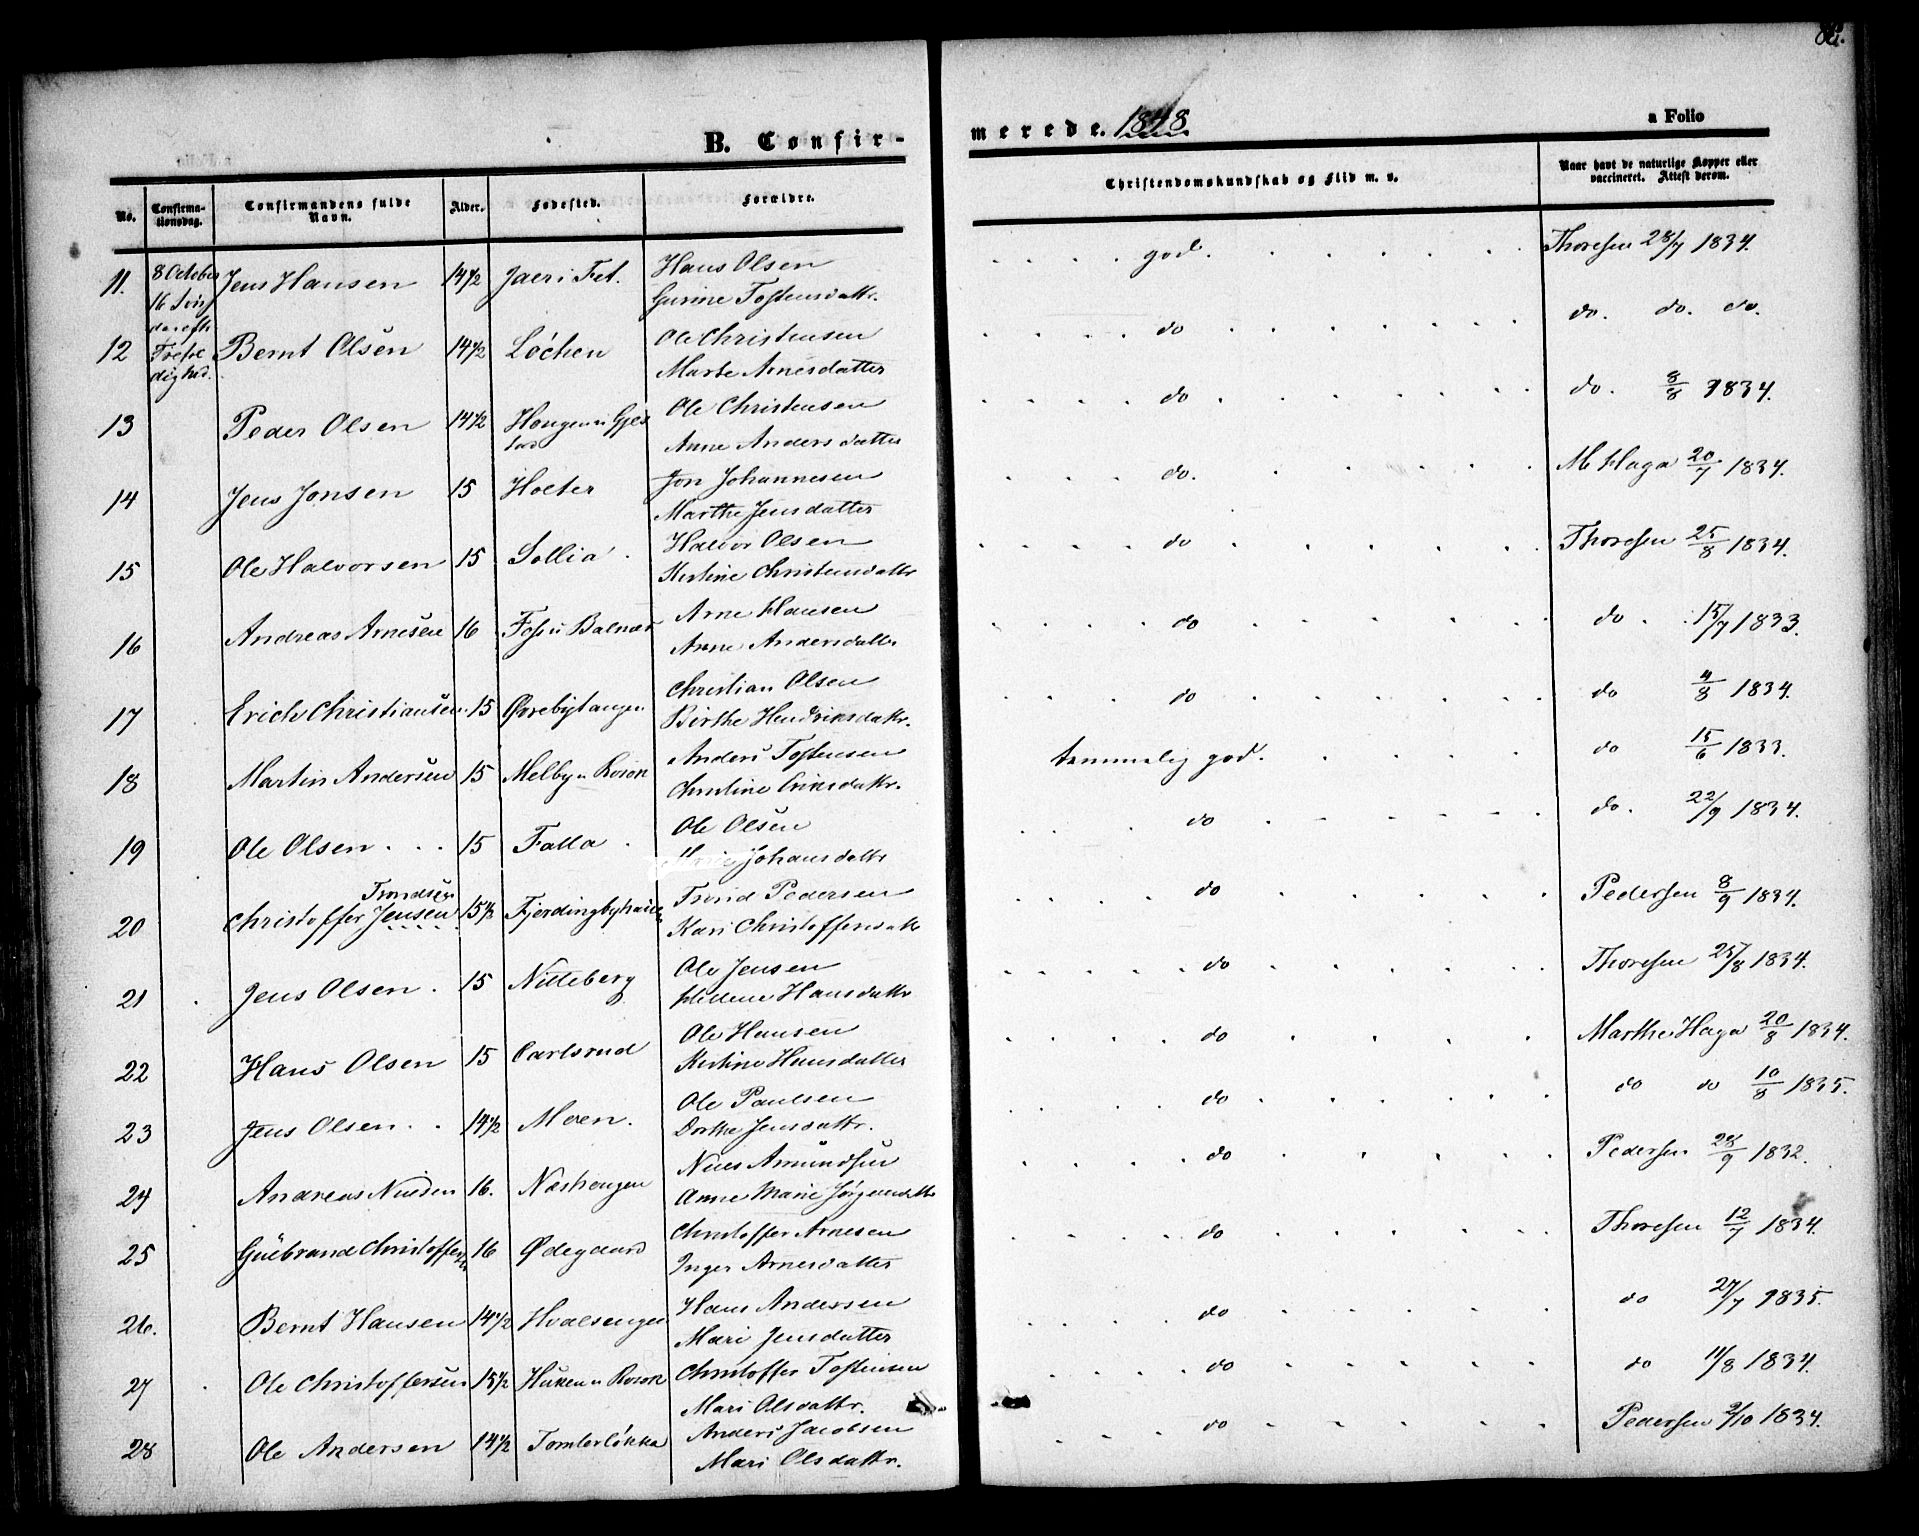 B. Confir-
merede. 1848.
a Folio
No.
Confirma-
tionsdag.
Confirmandens fulde
Navn.
Alder.
Fødested.
Forældre.
Christendomskundskab og Flid m. v.
Naar havt de naturlige Kopper eller
vaccineret. Attest derom.
11. 8 October Jens Hansen 14½ Jaer i Fet. Hans Olsen god. Thoresen 28/7 1834.
Gurine Tostensdattr.
12 Bernt Olsen 14½ Løchen Ole Christensen do do. do. do.
Marte Arnesdatter
13 Peder Olsen 14½ Haugen u Gjel Ole Christensen do do. 8/8 1834.
stad Anne Andersdatter
14 Jens Jonsen 15 Holter Jon Johannesen do. M Haga 20/7 1834.
Marthe Jensdatter
15 Ole Halvorsen 15 Sollia Halvor Olsen do Thoresen 25/8 1834.
Kirstine Christensdattr
16 Andreas Arnesen 16 Foss u Balnæs Arne Hansen do do. 15/7 1833.
Anne Andersdattr
17 Erich Christiansen 15 Øvrebytangen Christian Olsen do do 4/8 1834.
Birthe Hendriksdattr.
18 Martin Andersen 15 Melby u Rosok Anders Tostensen temmelig god. do 15/6 1833.
Christine Eriksdattr.
19 Ole Olsen 15 Falla Ole Olsen do do. 22/9 1834.
Johansdattr
Trondsen
20 Christoffer Jensen 15½ Trond Pedersen do Pedersen 8/9 1834.
Kari Christoffersdattr
21 Jens Olsen 15 Nitteberg Ole Jensen do Thoresen 25/8 1834.
Hellene Hansdattr
22 Hans Olsen 15 Carlsrud Ole Hansen do Marthe Haga 20/8 1834.
Kirstine Hansdatter
23 Jens Olsen 14½ Moen. Ole Paulsen do do do 10/8 1835.
Dorthe Jensdattr.
24 Andreas Nielsen 16. Næshengen Niels Amundsen do Pedersen 28/9 1832.
Anne Marie Jørgensdattr
25 Gulbrand Christoffersen 16 Ødegaard Christoffer Arnesen do Thoresen 12/7 1834.
Inger Arnesdatter
26. Bernt Hansen 14½ Hvalsengen Hans Andersen do do 27/7 1835.
Mari Jensdatter
27 Ole Christoffersen 15½ Huken u Rosok Christoffer Tostensen do do 11/8 1834.
Mari Olsdattr.
28 Ole Andersen 14½ Tomterløkka Anders Jacobsen do Pedersen 2/10 1834.
Mari Olsdattr.